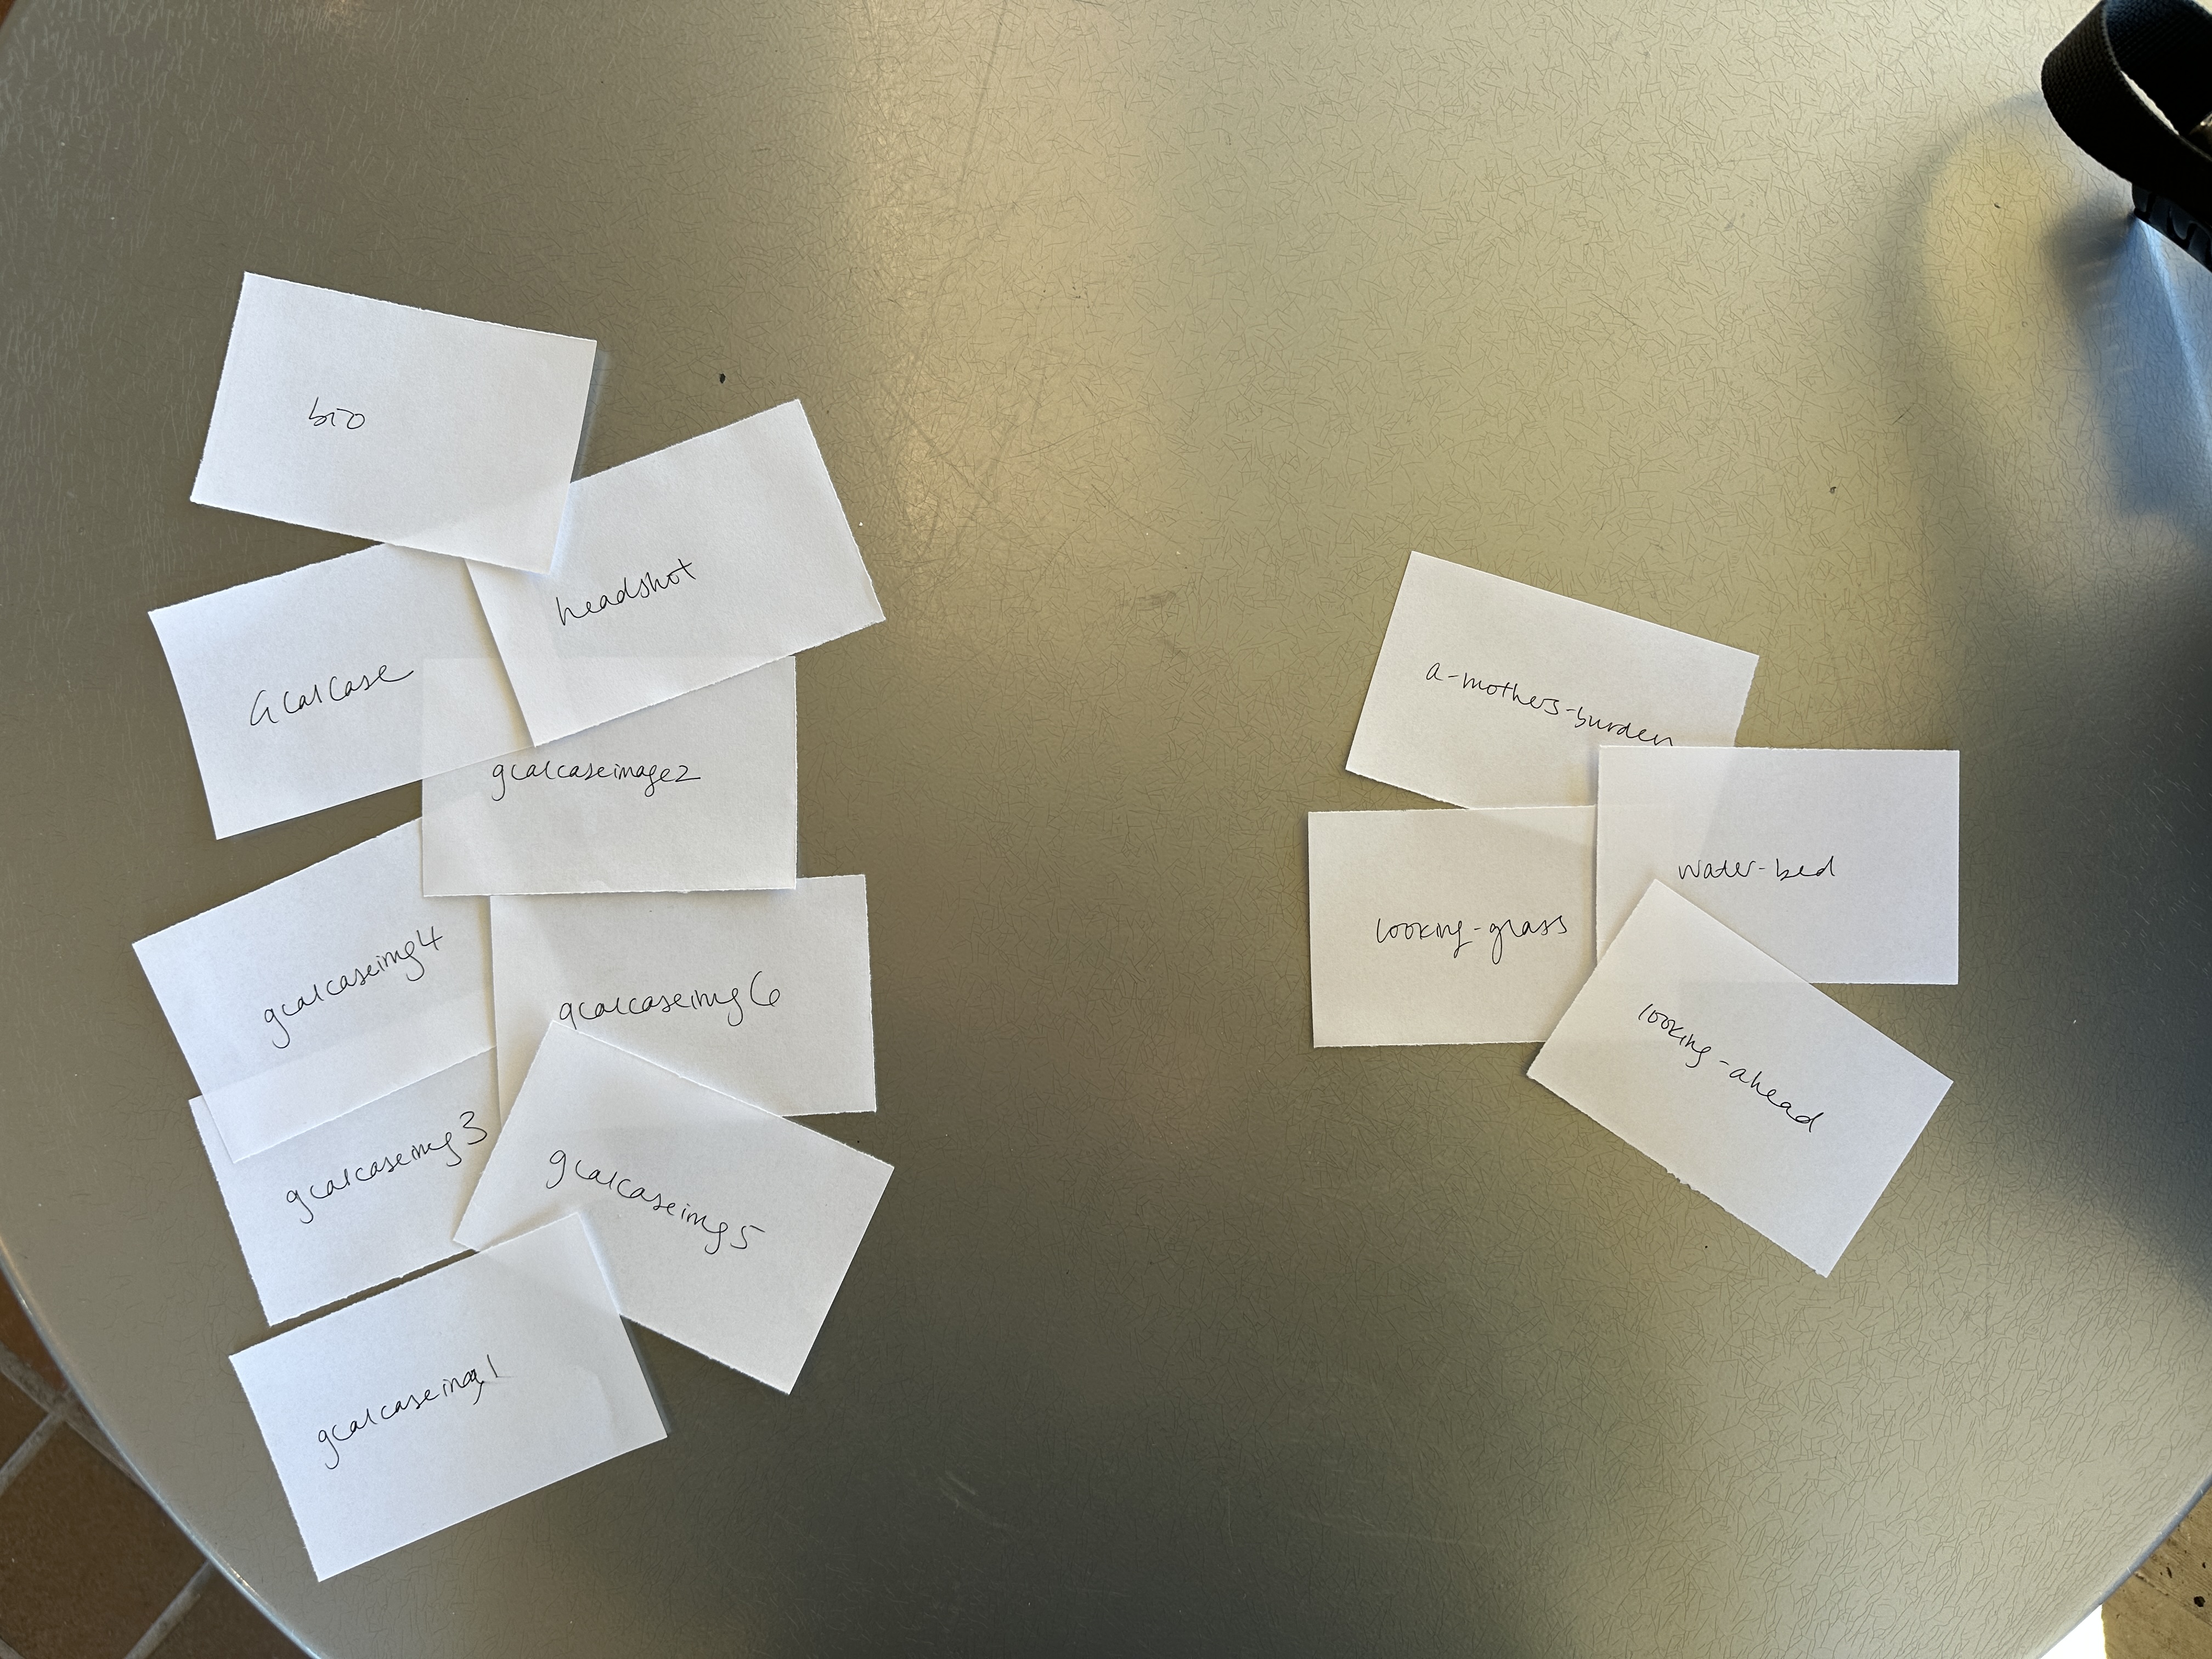 bio
headshot
Gcalcase
gcalcaseimage2
gcalcaseimg4
gcalcaseimg6
gcalcaseimg3
gcalcaseimg5
gcalcaseimg1
a-mothers-burden
water-bed
looking-grass
looking-ahead